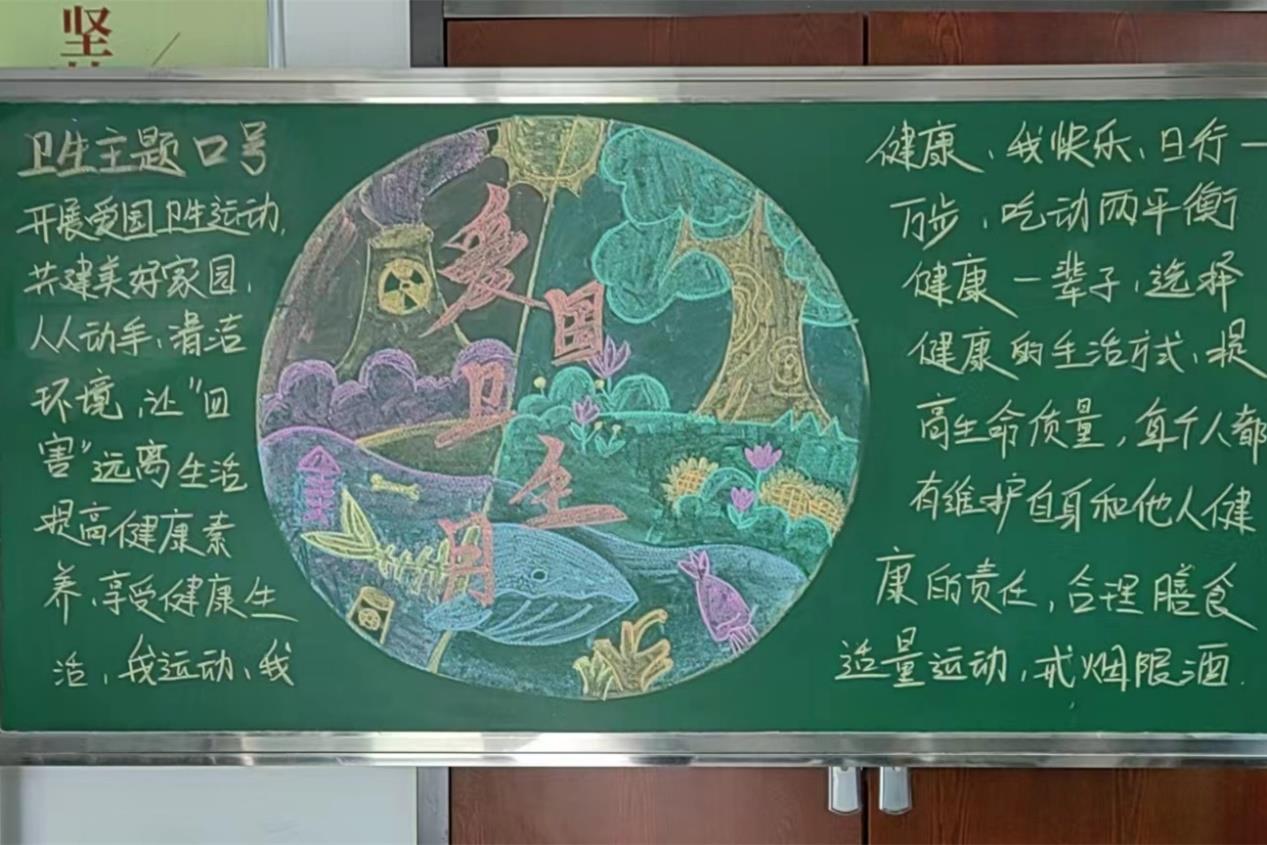 坚
卫生主题口号
开展爱国卫生运动,
共建美好家园,
人人动手,清洁
环境,让"四
害"远离生活
提高健康素
养,享受健康生
活,我运动,我
爱国卫生月
健康,我快乐,日行一
万步,吃动两平衡
健康一辈子,选择
健康的生活方式,提
高生命质量,每个人都
有维护自身和他人健
康的责任,合理膳食
适量运动,戒烟限酒.